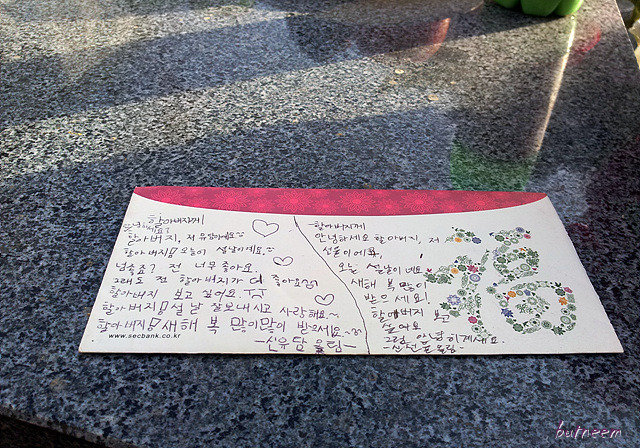 할아버지께
할아버지, 저 유담이에요
할아버지! 오늘이 설날이에요.
전 너무 좋아요.
그래도 전 할아버지가 더 좋아요
할아버지 보고 싶어요. ㅠㅠ
할아버지! 설날 잘보내시고 사랑해요~
할아버지! 새해 복 많이많이 받으세요~
-신유담 올림-
www.secbank.co.kr
-할아버지께
안녕하세요 할아버지, 저
오늘 설날이네요
새해 복 많이
받으세요!
할아버지 보고
싶어요
그럼 안녕히계세요.
복
burneem